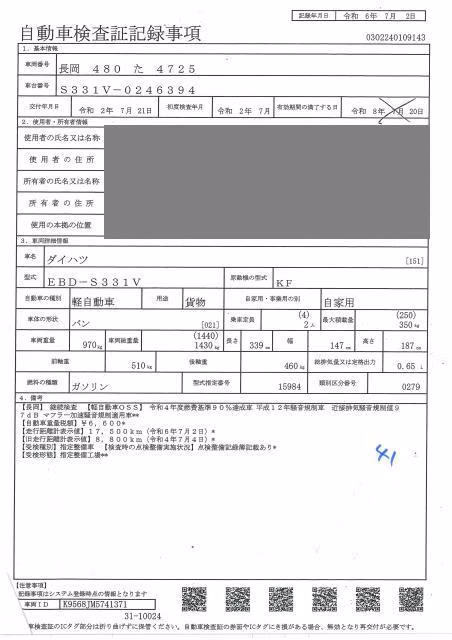 記録年月日 令和 6年 7月 2日
自動車検査証記録事項 0302240109143
1. 基本情報
車両番号 長岡 480 た 4725
車台番号 S331V-0246394
交付年月日 令和 2年 7月 21日 初度検査年月 令和 2年 7月 有効期間の満了する日 令和 8年 7月 20日
2. 使用者・所有者情報
使用者の氏名又は名称
使用者の住所
所有者の氏名又は名称
所有者の住所
使用の本拠の位置
3. 車両詳細情報
車名 ダイハツ [151]
型式 EBD-S331V 原動機の型式 KF
自動車の種別 軽自動車 用途 貨物 自家用・事業用の別 自家用
車体の形状 バン [021] 乗車定員 (4) 2人 最大積載量 (250) 350kg
車両重量 970kg 車両総重量 (1440) 1430kg 長さ 339cm 幅 147cm 高さ 187cm
前軸重 510kg 後軸重 460kg 総排気量又は定格出力 0.65 L
燃料の種類 ガソリン 型式指定番号 15984 類別区分番号 0279
4. 備考
【長岡】 継続検査 【軽自動車OSS】 令和4年度燃費基準90%達成車 平成12年騒音規制車 近接排気騒音規制値9
7dB マフラー加速騒音規制適用車**
【自動車重量税額】¥6,600*
【走行距離計表示値】17,500km(令和6年7月2日)*
【旧走行距離計表示値】8,800km(令和4年7月4日)*
【受検種別】指定整備車 【検査時の点検整備実施状況】点検整備記録簿記載あり*
【受検形態】指定整備工場**
41
【注意事項】
記録事項はシステム登録時点の情報となります
車両ID K9568JM5741371
31-10024
車検査証のICタグ部分は折り曲げずに保管ください。自動車検査証の券面やICタグにき損がある場合、無効となり再交付が必要です。